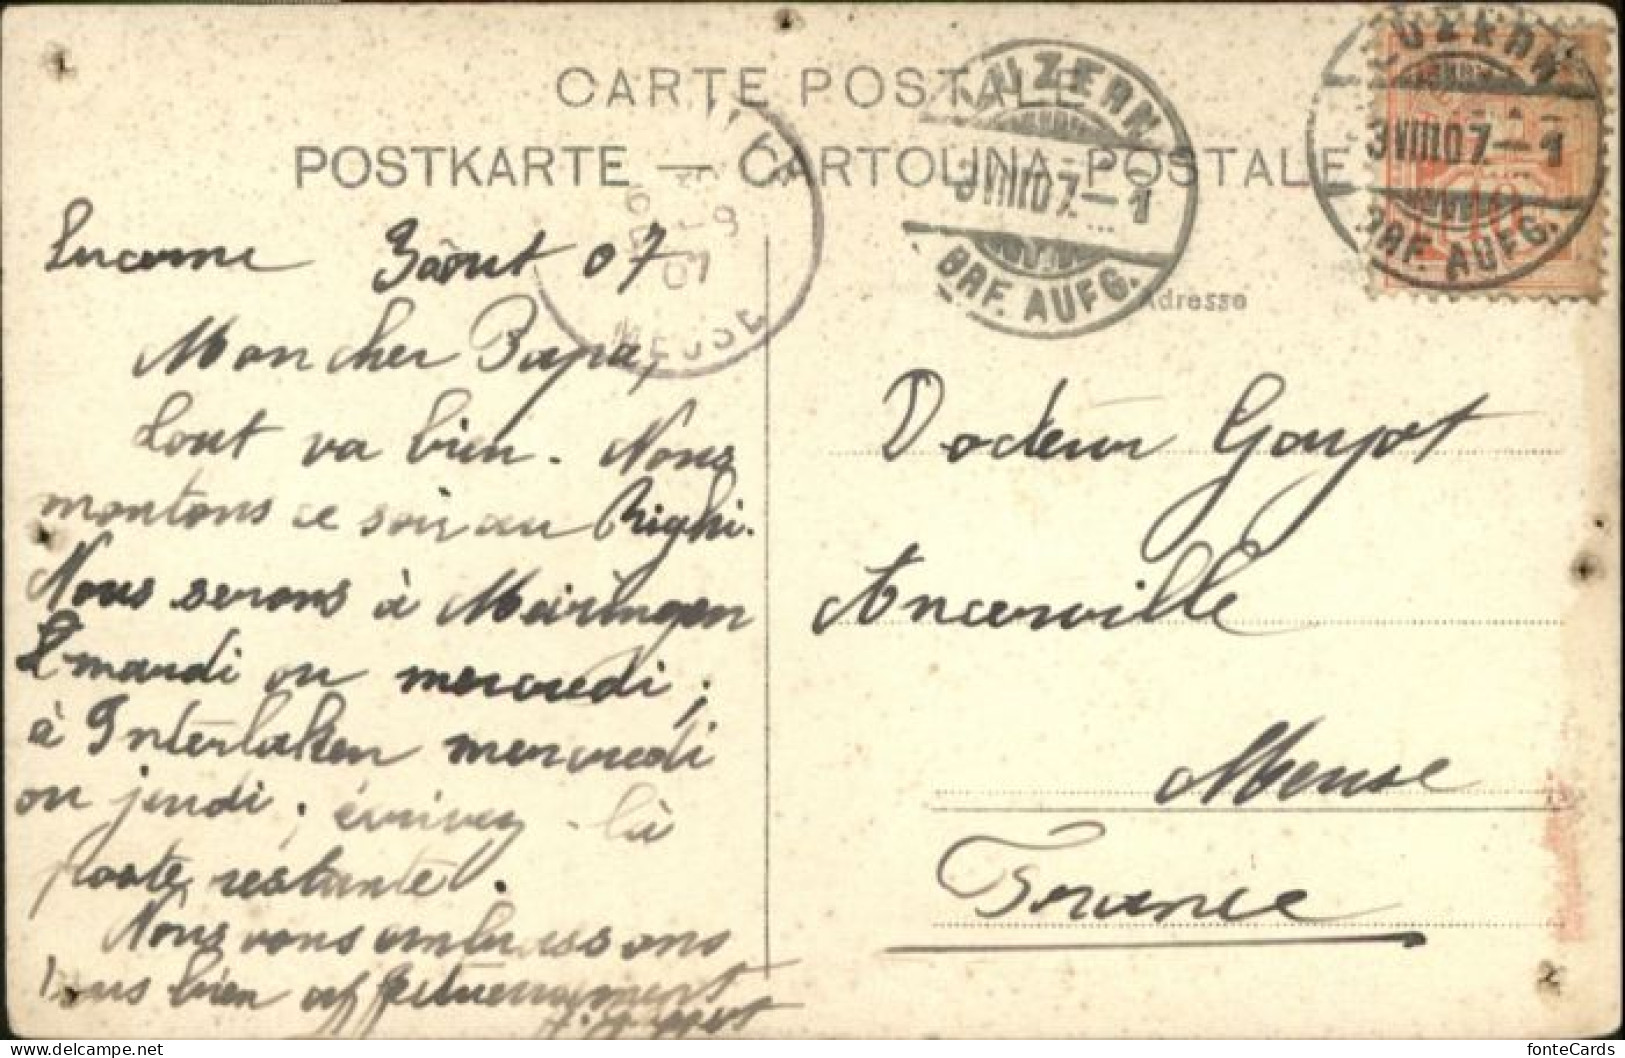 CARTE POSTALE
POSTKARTE — CARTOLINA POSTALE
LUZERN
3 VIII 07. – 1
BRF. AUFG.
LUZERN
3 VIII 07. – 1
BRF. AUFG.
10
VILLE
MEUSE
Adresse
Lucerne 3 août 07
Mon cher Papa,
tout va bien. Nous
montons ce soir au Righi.
Nous serons à Meiringen
mardi ou mercredi ;
à Interlaken mercredi
ou jeudi ; écrivez là
poste restante.
Nous vous embrassons
tous bien affectueusement
Docteur Goujot
Ancerville
Meuse
France
fonteCards